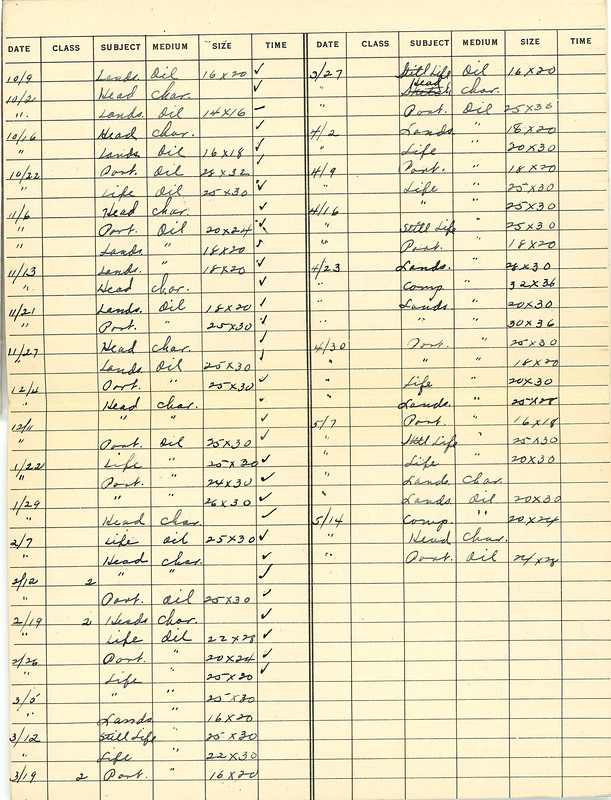 DATE CLASS SUBJECT MEDIUM SIZE TIME
10/9 Lands. Oil 16x20 ✓
10/2 Head Char. ✓
" Lands. Oil 14x16 –
10/16 Head Char. ✓
" Lands. Oil 16x18 ✓
10/22 Port. Oil 28x32 ✓
" Life Oil 25x30 ✓
11/6 Head Char. ✓
" Port. Oil 20x24 ✓
" Lands " 18x20 ✓
11/13 Lands. " 18x20 ✓
" Head Char. ✓
11/21 Lands. Oil 18x20 ✓
" Port. " 25x30 ✓
11/27 Head Char. ✓
" Lands Oil 25x30 ✓
12/4 Port. " 25x30 ✓
" Head Char. "
12/11 " " ✓
" Port. Oil 25x30 ✓
1/22 Life " 25x30 ✓
" Port. " 24x30 ✓
1/29 " " 26x30 ✓
" Head Char. ✓
2/7 Life Oil 25x30 ✓
" Head Char. ✓
2/12 2 " " ✓
" Port. Oil 25x30 ✓
2/19 2 Heads Char. ✓
" Life Oil 22x28 ✓
2/26 Port. " 20x24 ✓
" Life " 25x20 ✓
3/5 " " 25x30
" Lands " 16x20
3/12 Still Life " 25x30
" Life " 22x30
3/19 2 Port. " 16x20
DATE CLASS SUBJECT MEDIUM SIZE TIME
3/27 Still Life Oil 16x20
Head
" Sketch Char.
" Port. Oil 25x30
4/2 Lands. " 18x20
" Life " 20x30
4/9 Port. " 18x20
" Life " 25x30
4/16 " " 25x30
" Still Life " 25x30
" Port. " 18x20
4/23 Lands. " 28x30
" Comp. " 32x36
" Lands. " 20x30
" " " 30x36
4/30 Port. " 25x30
" " " 18x20
" Life " 20x30
Lands. " 25x28
5/7 Port. " 16x18
" Still Life " 25x30
" Life " 20x30
" Lands Char.
" Lands Oil 20x30
5/14 Comp. " 20x24
" Head Char.
" Port. Oil